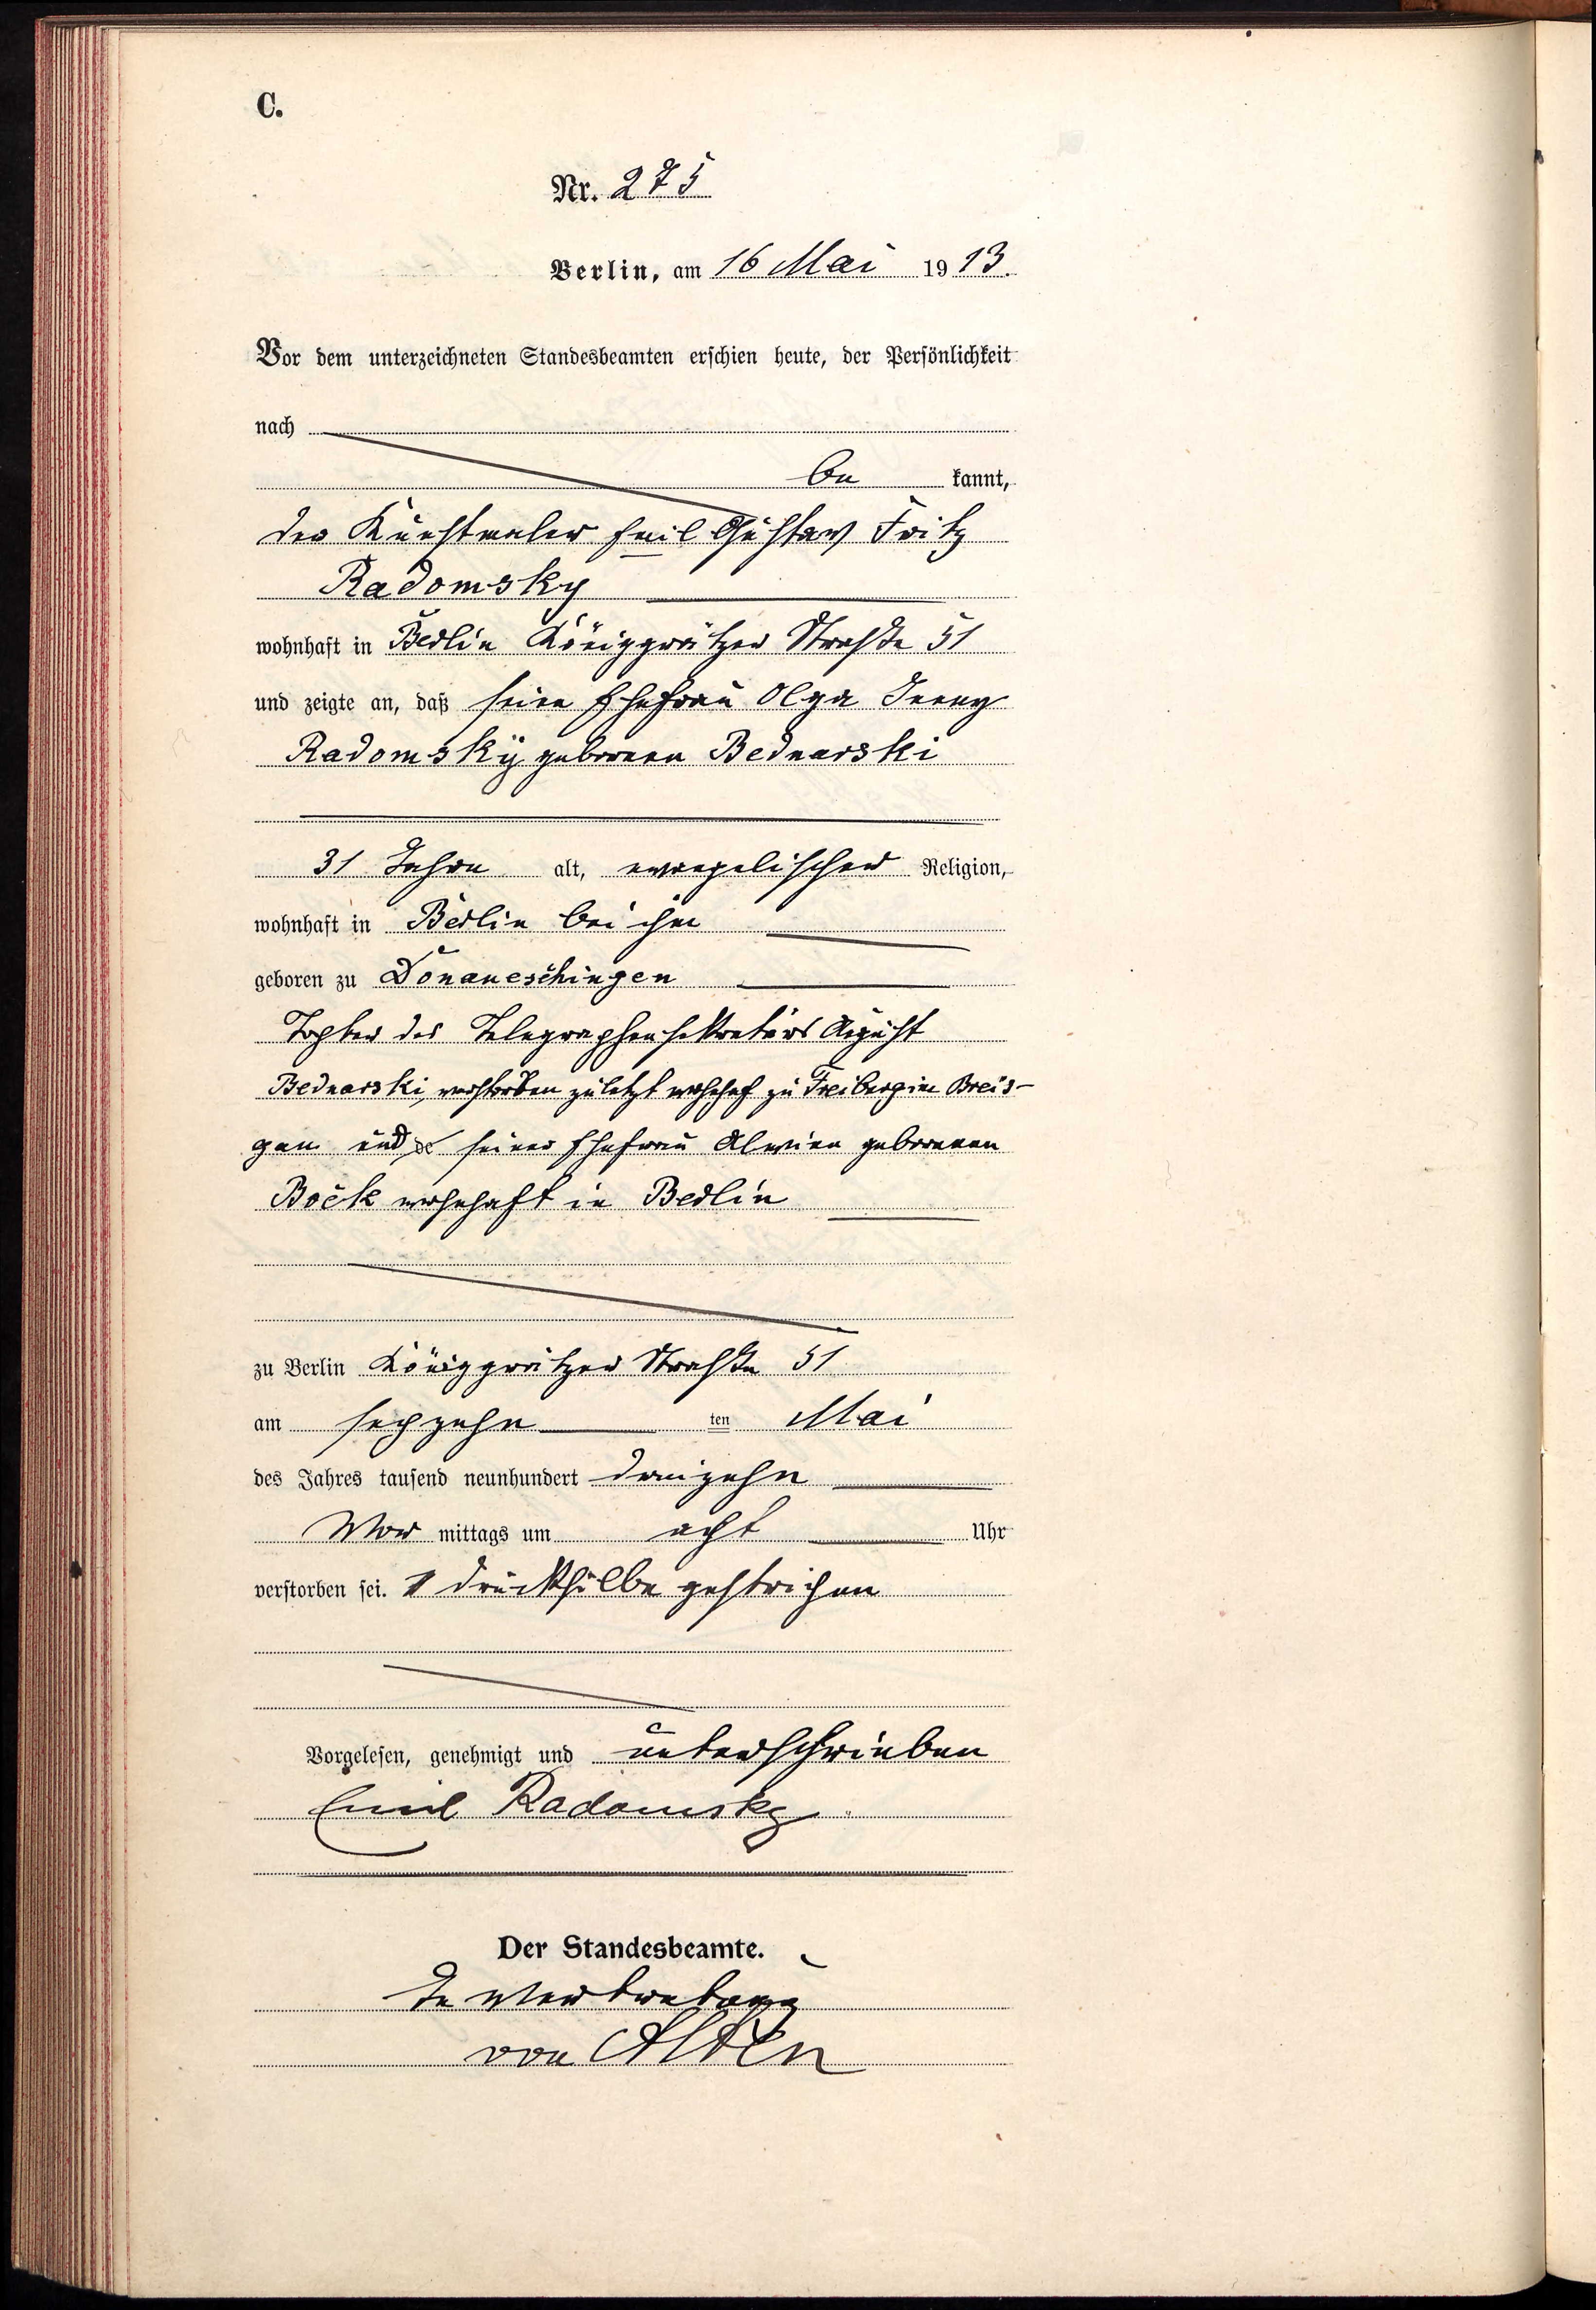 C.
Nr. 275
Berlin, am 16 Mai 1913.
Vor dem unterzeichneten Standesbeamten erschien heute, der Persönlichkeit
nach
be kannt,
der Kunstmaler Emil Gustav Fritz
Radomsky
wohnhaft in Berlin Königgrätzer Straße 51
und zeigte an, daß seine Ehefrau Olga Jenny
Radomsky geborene Bednarski
31 Jahre alt, evangelischer Religion,
wohnhaft in Berlin bei ihm
geboren zu Donaueschingen
Tochter des Telegraphensekretärs August
Bednarski, verstorben zuletzt wohnhaft zu Freiberg im Breis-
gau und seiner Ehefrau Alwine geborenen
Bock wohnhaft in Berlin
zu Berlin Königgrätzer Straße 51
am sechzehn ten Mai
des Jahres tausend neunhundert dreizehn
Vor mittags um acht Uhr
verstorben sei. 1 Drucksilbe gestrichen
Vorgelesen, genehmigt und unterschrieben
Emil Radomsky
Der Standesbeamte.
In Vertretung
von Alten